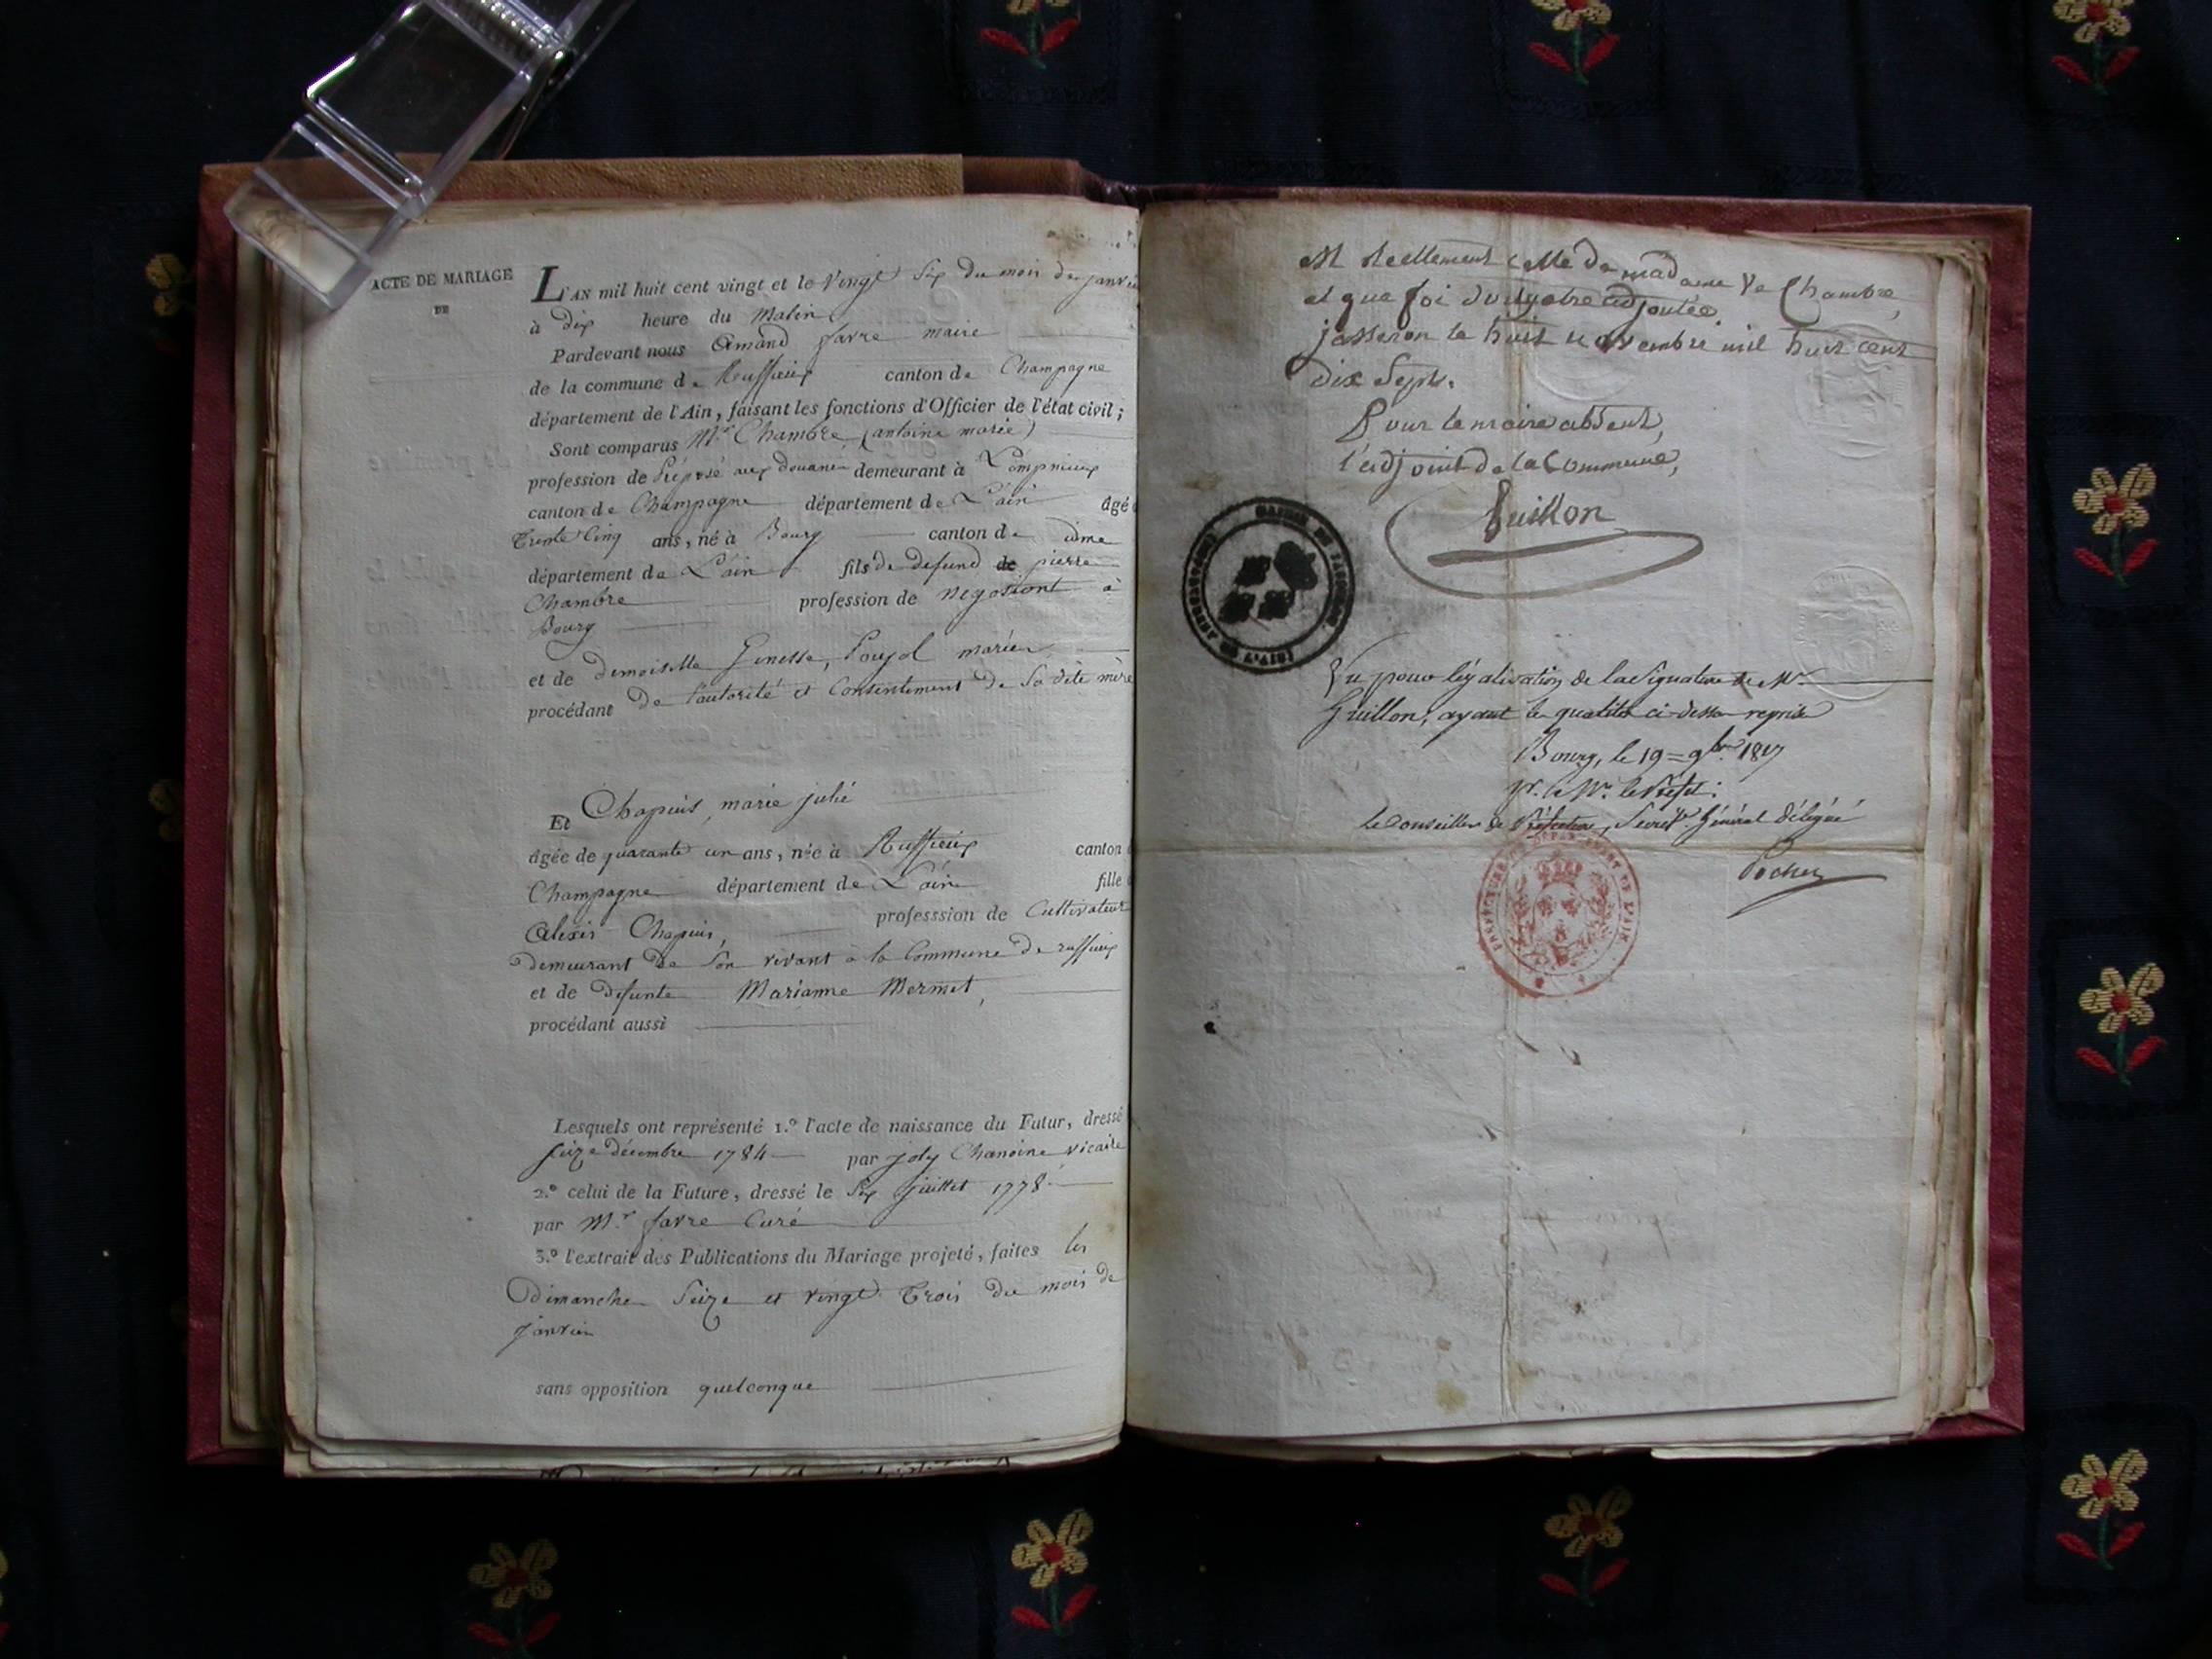 ACTE DE MARIAGE
DE
L'AN mil huit cent vingt et le vingt six du mois de janvie
à dix heure du Matin
Pardevant nous Amand favre maire
de la commune de Ruffieux canton de Champagne
département de l'Ain, faisant les fonctions d'Officier de l'état civil;
Sont comparus Mr. Chambre (antoine marie)
profession de Préposé aux douanes demeurant à Lompnieux
canton de Champagne département de L'ain âgé
Trente Cinq ans, né à Bourg canton de idme
département de L'ain fils de defund de pierre
Chambre profession de negosiont à
Bourg
et de demoiselle Ginesse, Poujol mariée
procédant de l'autorité et Consentement de Sa dite mère
Et Chapuis, marie julie
âgée de quarante un ans, née à Ruffieux canton
Champagne département de L'ain fille
Alexis Chapuis, professsion de Cultivateur
demeurant de Son vivant à la Commune de ruffieux
et de defunte Marianne Mermet,
procédant aussi
Lesquels ont représenté 1.º l'acte de naissance du Futur, dressé
Seize décembre 1784 par joly Chanoine vicaire
2.º celui de la Future, dressé le Six juillet 1778
par Mr. favre Curé
3.º l'extrait des Publications du Mariage projeté, faites les
dimanche Seize et vingt Trois du mois de
janvier
sans opposition quelconque
est réellement celle de madame Ve Chambre,
et que foi doit y etre adjoutée
jasseron le huit novembre mil huit cent
dix Sept.
Pour le maire absent,
l'adjoint de la Commune,
Guillon
MAIRIE DE
Vu pour légalisation de la Signature de Mr.
Guillon, ayant la qualité ci-dessus reprise
Bourg, le 19 = 9bre 1817
pr. le Mr. le Préfet:
le Conseiller de Préfecture, Secrétre Général délégué
PRÉFECTURE DU DÉPARTEMENT DE L'AIN